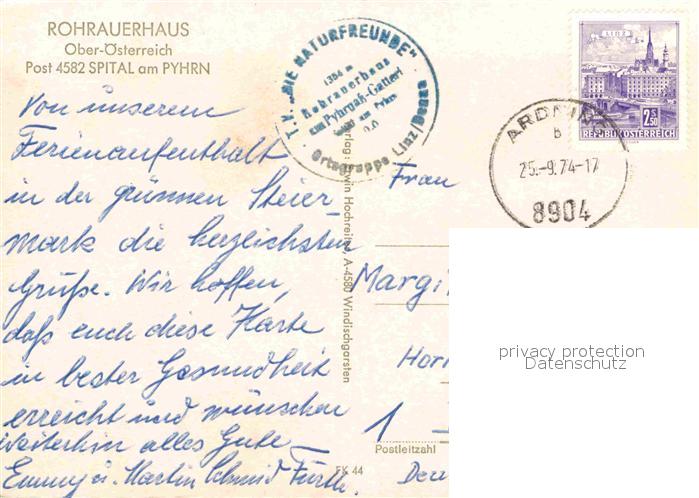 ROHRAUERHAUS
Ober-Österreich
Post 4582 SPITAL am PYHRN
T. V. „DIE NATURFREUNDE"
1304 m
Rohrauerhaus
am Pyhrgaß-Gatterl
am Pyhrn
O.Ö.
Ortsgruppe Linz/Donau
LINZ
2.50
REPUBLIK ÖSTERREICH
ARDNING
B
25.-9.74-17
8904
Von unserem
Ferienaufenthalt
in der grünnen Steier-
mark die herzlichsten
Grüße. Wir hoffen,
daß euch diese Karte
in bester Gesundheit
erreicht und wünschen
weiterhin alles Gute
Emmy u. Martin Schmid Fürth.
Verlag: Erwin Hochreiter, A-4580 Windischgarsten
FK 44
Frau
Margi
Hor
1
Postleitzahl
privacy protection
Datenschutz